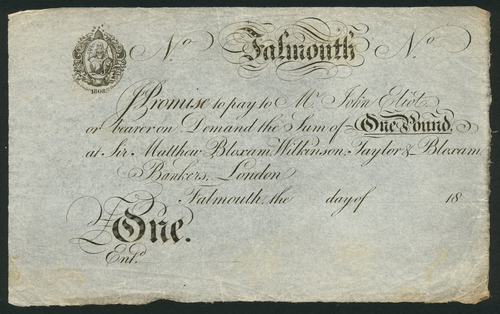 No Falmouth No
1808
I Promise to pay to Mr. John Eliot
or bearer on Demand the Sum of One Pound,
at Sir Matthew Bloxam, Wilkinson, Taylor & Bloxam
Bankers, London
Falmouth, the day of 18
£ One.
Entd.